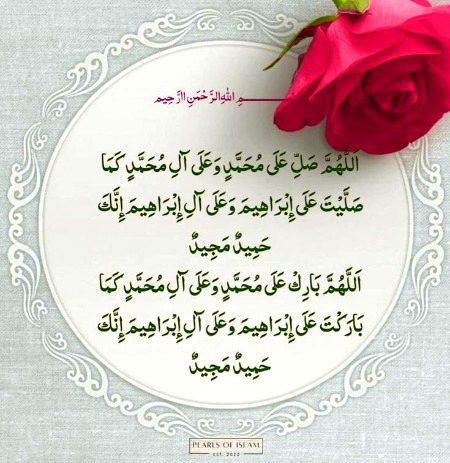 بِسْمِ اللهِ الرَّحْمَنِ الرَّحِيم
اَللّٰهُمَّ صَلِّ عَلَى مُحَمَّدٍ وَعَلَى آلِ مُحَمَّدٍ كَمَا
صَلَّيْتَ عَلَى إِبْرَاهِيمَ وَعَلَى آلِ إِبْرَاهِيمَ إِنَّكَ
حَمِيدٌ مَجِيدٌ
اَللّٰهُمَّ بَارِكْ عَلَى مُحَمَّدٍ وَعَلَى آلِ مُحَمَّدٍ كَمَا
بَارَكْتَ عَلَى إِبْرَاهِيمَ وَعَلَى آلِ إِبْرَاهِيمَ إِنَّكَ
حَمِيدٌ مَجِيدٌ
PEARLS OF ISLAM
est. 2022